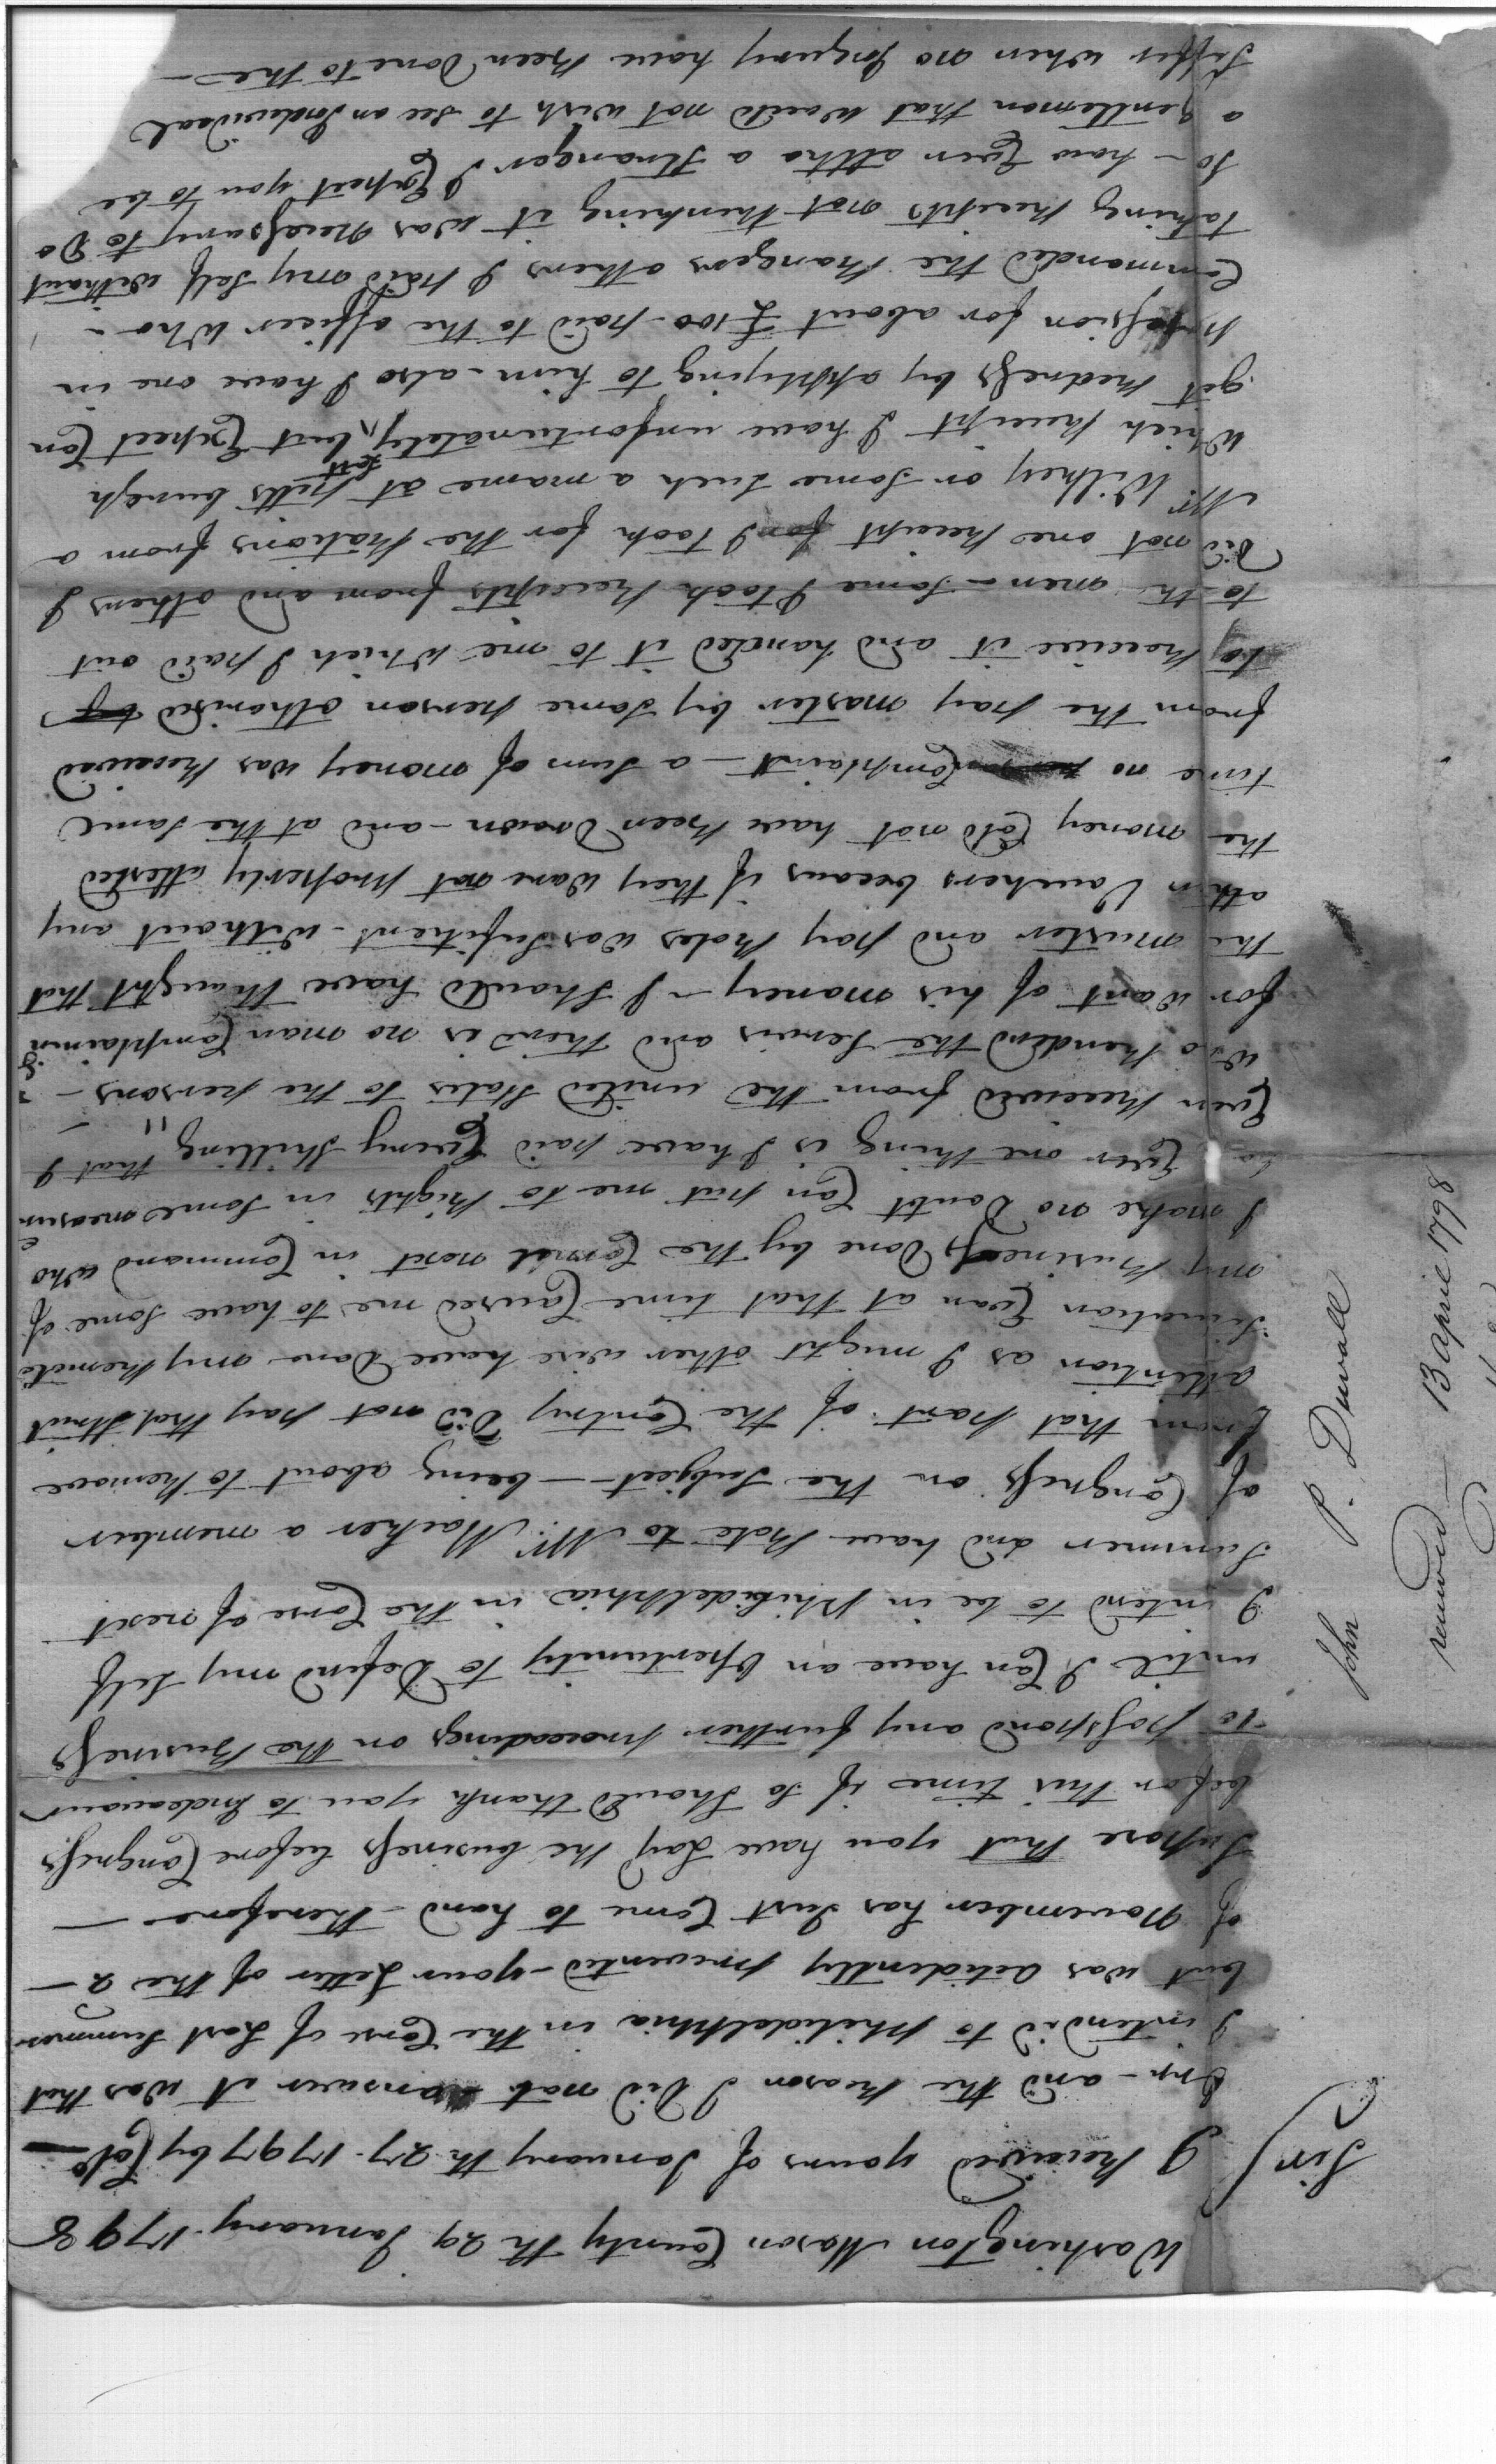 Washington Mason County th 29 January 1798
Sir
I Received yours of January th 27. 1797 by Colo—
Orr - and the Reason I Did not answer it was that
I intendid to Philidelphia in the Corse of Last Summer
but was acsidentlly prevented - your Letter of the 2 —
of November has Just Come to hand - therefore —
Supose that you have Lay the business before Congress
befor this time if so Should thank you to Indeavour
to posspond any further proceedings on the Business
until I Can have an Opertunity to Defend my Self
I intend to be in Philidelphia in the Corse of next
Summer and have Rote to Mr. Macher a member
of Congress on the Subject — being about to Remove
from that part of the Contry Did not pay that Strict
attention as I might other wise have Done my Remote
Situation Even at that time Caused me to have Some of
my Business Done by the Cornl next in Command who
I make no Doubt Can put me to Rights in Some measure
Ever one thing is I have paid Every Shilling that I
Ever Received from the united States to the persons —
who Rendered the Servis and there is no man Complaining
for want of his money - I Should have thaught that
the muster and pay Roles was Sufitient - without any
other Vauchers becaus if they ware not properly attested
the money Cold not have been Drawn - and at the Same
time no Complaint - a Sum of money was Received
from the pay master by Some person othorised by
to Receive it and handed it to me Which I paid out
to th men - Some I took Receipts from and others I
Did not one Receipt for I took for the Rations from a
Mr. Wilkey or Some Such a mame at pitts burgh
Which Receipt I have unfortunately lost but Expect Can
git Redress by applying to him - also I have one in
possesion for about £100 - paid to the officer Who —
Commanded the Rangers others I paid my Self without
taking Receipts not thinking it was Necessary to Do
So - how Ever altho a Stranger I Expect you to be
a Gentleman that would not wish to See an Individeal
Suffer when no Injury have been Done to the —
John P. Duvall
renewed —
13 April 1798